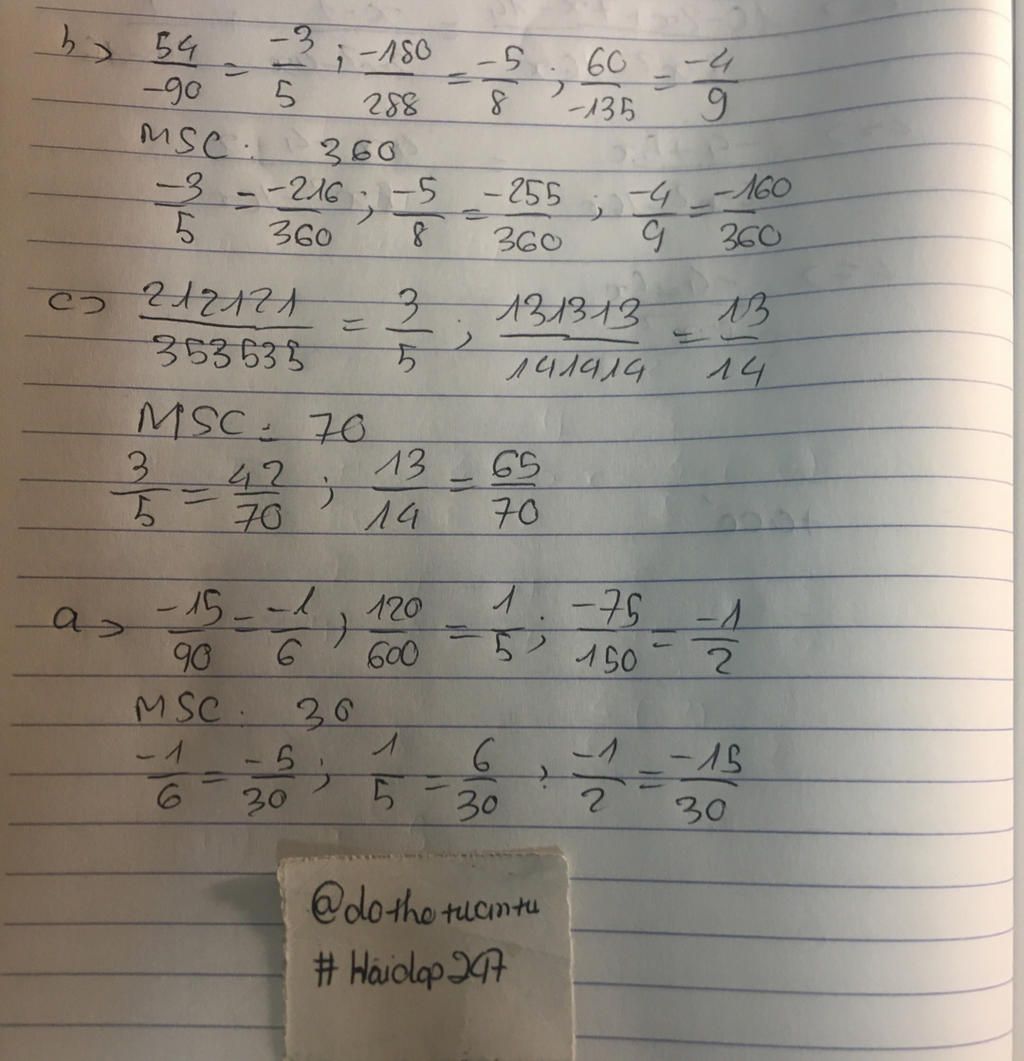 b> 54/-90 = -3/5 ; -180/288 = -5/8 ; 60/-135 = -4/9
MSC: 360
-3/5 = -216/360 ; -5/8 = -255/360 ; -4/9 = -160/360
c> 212121/353535 = 3/5 ; 131313/141414 = 13/14
MSC = 70
3/5 = 42/70 ; 13/14 = 65/70
a> -15/90 = -1/6 ; 120/600 = 1/5 ; -75/150 = -1/2
MSC: 30
-1/6 = -5/30 ; 1/5 = 6/30 ; -1/2 = -15/30
@dothetuantu
# Hỏiđáp247